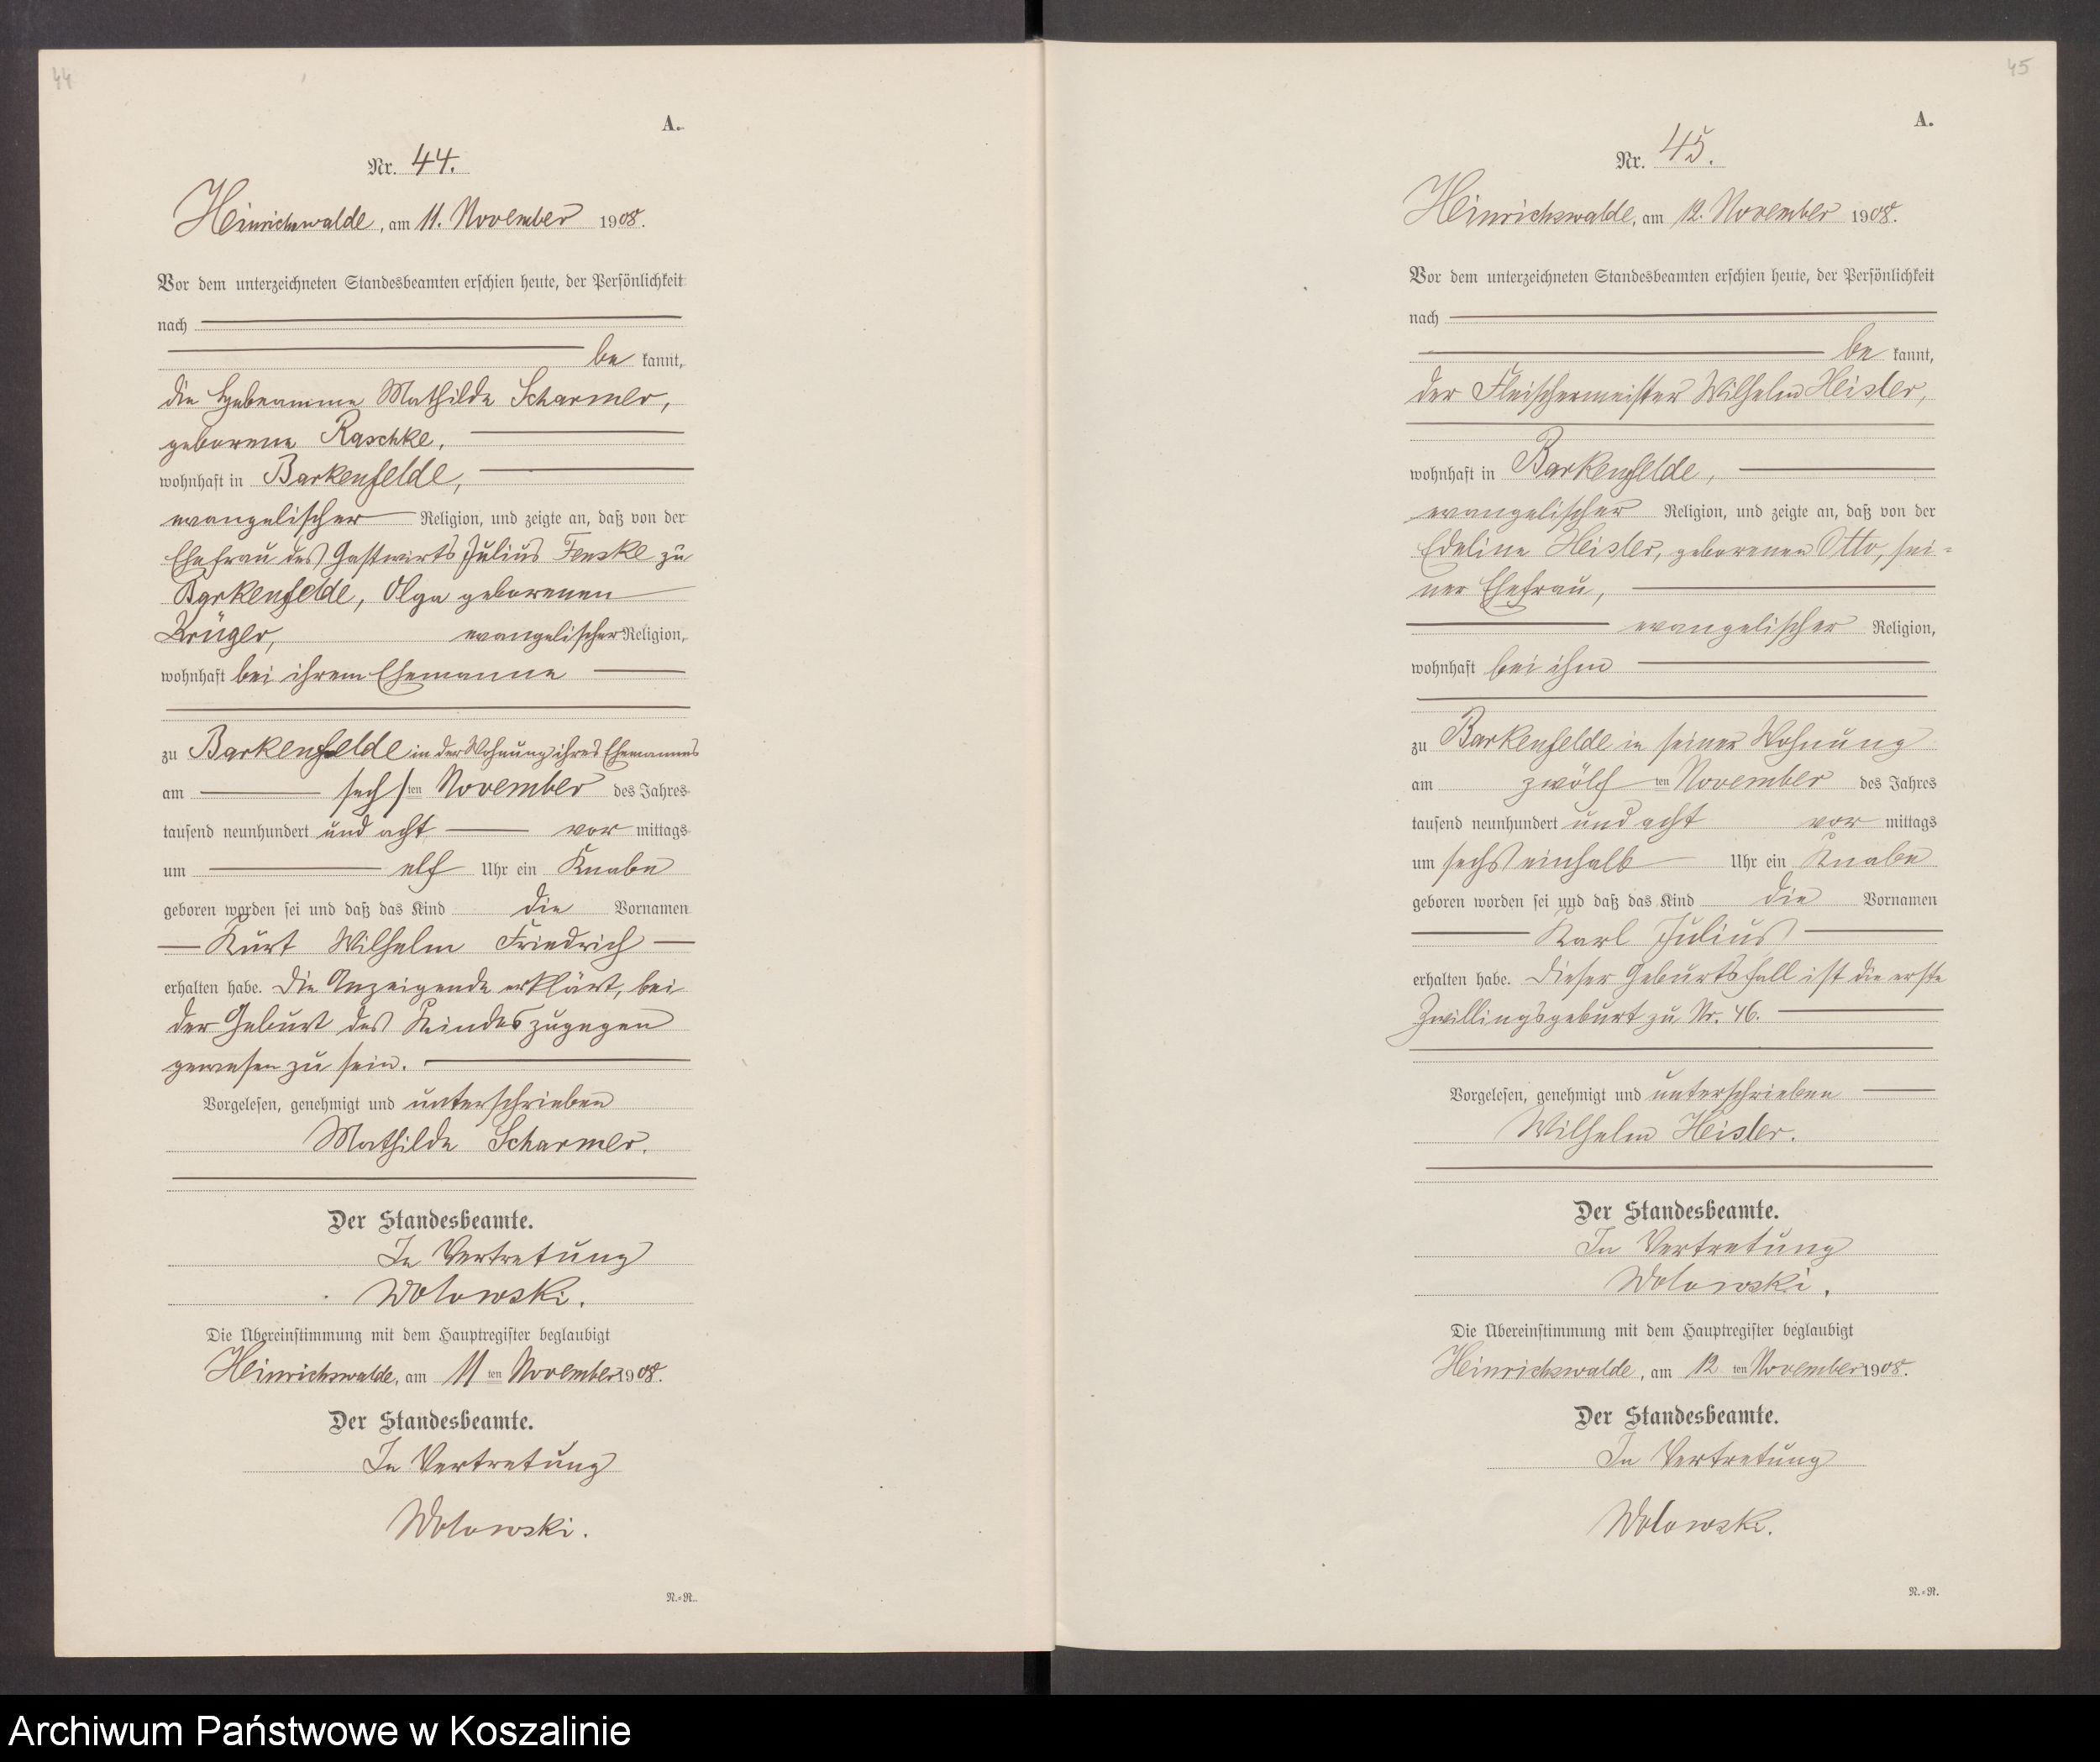 44
A.
Nr. 44.
Heinrichswalde, am 11. November 1908.
Vor dem unterzeichneten Standesbeamten erschien heute, der Persönlichkeit
nach
be kannt,
die Hebeamme Mathilde Scharmer,
geborene Raschke,
wohnhaft in Barkenfelde,
evangelischer Religion, und zeigte an, daß von der
Ehefrau des Gastwirts Julius Fenske zu
Barkenfelde, Olga geborenen
Krüger, evangelischer Religion,
wohnhaft bei ihrem Ehemanne
zu Barkenfelde in der Wohnung ihres Ehemannes
am sechsten November des Jahres
tausend neunhundert und acht vor mittags
um elf Uhr ein Knabe
geboren worden sei und daß das Kind die Vornamen
Kurt Wilhelm Friedrich
erhalten habe. Die Anzeigende erklärt, bei
der Geburt des Kindes zugegen
gewesen zu sein.
Vorgelesen, genehmigt und unterschrieben
Mathilde Scharmer.
Der Standesbeamte.
In Vertretung
Wolowski.
Die Übereinstimmung mit dem Hauptregister beglaubigt
Heinrichswalde, am 11ten November 1908.
Der Standesbeamte.
In Vertretung
Wolowski.
N.=R.
45
A.
Nr. 45.
Heinrichswalde, am 12. November 1908.
Vor dem unterzeichneten Standesbeamten erschien heute, der Persönlichkeit
nach
be kannt,
der Fleischermeister Wilhelm Heisler,
wohnhaft in Barkenfelde,
evangelischer Religion, und zeigte an, daß von der
Edeline Heisler, geborenen Otto, sei=
ner Ehefrau,
evangelischer Religion,
wohnhaft bei ihm
zu Barkenfelde in seiner Wohnung
am zwölf ten November des Jahres
tausend neunhundert und acht vor mittags
um sechseinhalb Uhr ein Knabe
geboren worden sei und daß das Kind die Vornamen
Karl Julius
erhalten habe. Dieser Geburtsfall ist die erste
Zwillingsgeburt zu Nr. 46.
Vorgelesen, genehmigt und unterschrieben
Wilhelm Heisler.
Der Standesbeamte.
In Vertretung
Wolowski.
Die Übereinstimmung mit dem Hauptregister beglaubigt
Heinrichswalde, am 12 ten November 1908.
Der Standesbeamte.
In Vertretung
Wolowski.
N.=R.
Archiwum Państwowe w Koszalinie